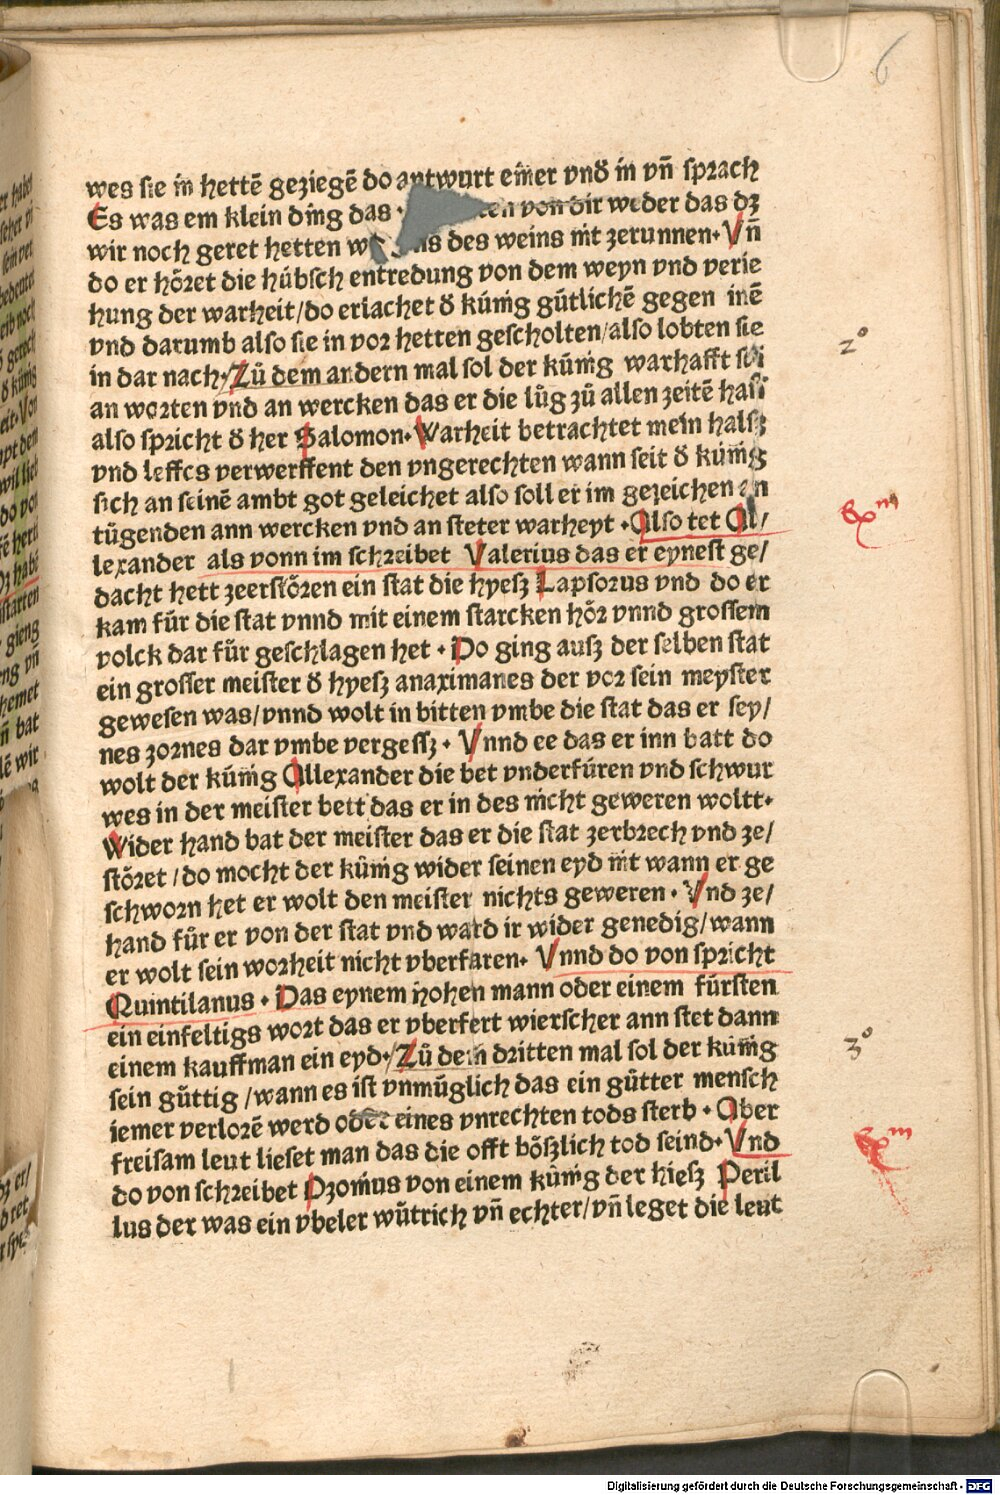 6
wes sie im hettē geziegē do antwurt einer vnd̕ in vn̄ sprach
Es was ein klein ding das von dir weder das dz
wir noch geret hetten des weins nit zerunnen· Vn̄
do er hoͤret die huͤbsch entredung von dem weyn vnd verie
hung der warheit/do erlachet d̕ kuͤnig guͤtlichē gegen inē
vnd darumb also sie in vor hetten gescholten/also lobten sie
in dar nach·/Zuͦ dem andern mal sol der kuͤnig warhafft sei
an worten vnd an wercken das er die luͤg zuͦ allen zeitē hasz
also spricht d̕ her Salomon· Warheit betrachtet mein halsz
vnd leffcs verwerffent den vngerechten wann seit d̕ kuͤnig
sich an seinē ambt got geleichet also soll er im gezeichen an
tuͤgenden ann wercken vnd an steter warheyt · Also tet Al/
lexander als vonn im schreibet Valerius das er eynest ge/
dacht hett zeerstoͤren ein stat die hyesz Lapsorus vnd do er
kam fuͤr die stat vnnd mit einem starcken hoͤr vnnd grossem
volck dar fuͤr geschlagen het · Do ging ausz der selben stat
ein grosser meister d̕ hyesz anaximanes der vor sein meyster
gewesen was/vnnd wolt in bitten vmbe die stat das er sey/
nes zornes dar vmbe vergessz · Vnnd ee das er inn batt do
wolt der kuͤnig Allexander die bet vnderfuͤren vnd schwur
wes in der meister bett das er in des nicht geweren woltt·
Wider hand bat der meister das er die stat zerbrech vnd ze/
stoͤret /do mocht der kuͤnig wider seinen eyd nit wann er ge
schworn het er wolt den meister nichts geweren · Vnd ze/
hand fuͤr er von der stat vnd ward ir wider genedig/wann
er wolt sein worheit nicht vberfaren· Vnnd do von spricht
Quintilanus · Das eynem hohen mann oder einem fuͤrsten
ein einfeltigs wort das er vberfert wierscher ann stet dann
einem kauffman ein eyd·/Zuͦ dem dritten mal sol der kuͤnig
sein guͤttig /wann es ist vnmuͤglich das ein guͤtter mensch
iemer verlorē werd oder eines vnrechten tods sterb · Aber
freisam leut lieset man das die offt boͤszlich tod seind· Vnd
do von schreibet Ozomius von einem kuͤnig der hiesz Peril
lus der was ein vbeler wuͤtrich vn̄ echter/vn̄ leget die leut
2°
3°
Digitalisierung gefördert durch die Deutsche Forschungsgemeinschaft - DFG